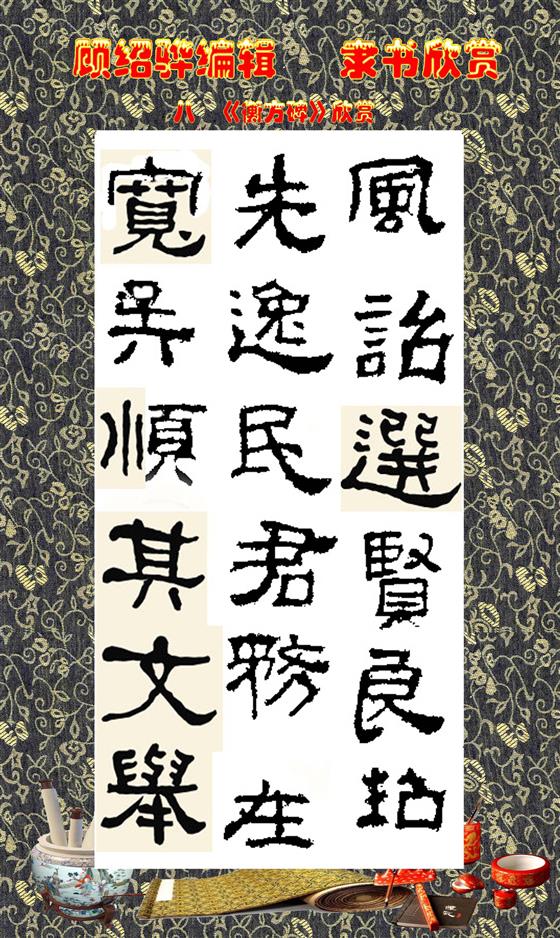 顾绍骅编辑 隶书欣赏
八 《衡方碑》欣赏
風詔選賢良招
先逸民君務在
寬吳順其文舉